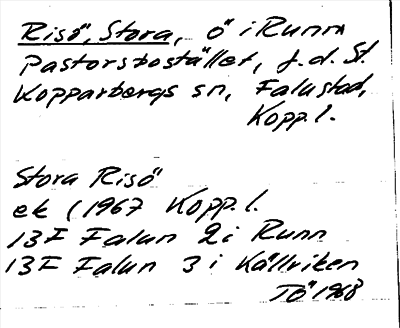 Risö, Stora, ö i Runn
Pastorsbostället, f.d. St.
Kopparbergs sn, Falu stad,
Kopp. l.
Stora Risö
ek (1967 Kopp. l.
13F Falun 2 i Runn
13F Falun 3 i Källviken
TÖ 1968